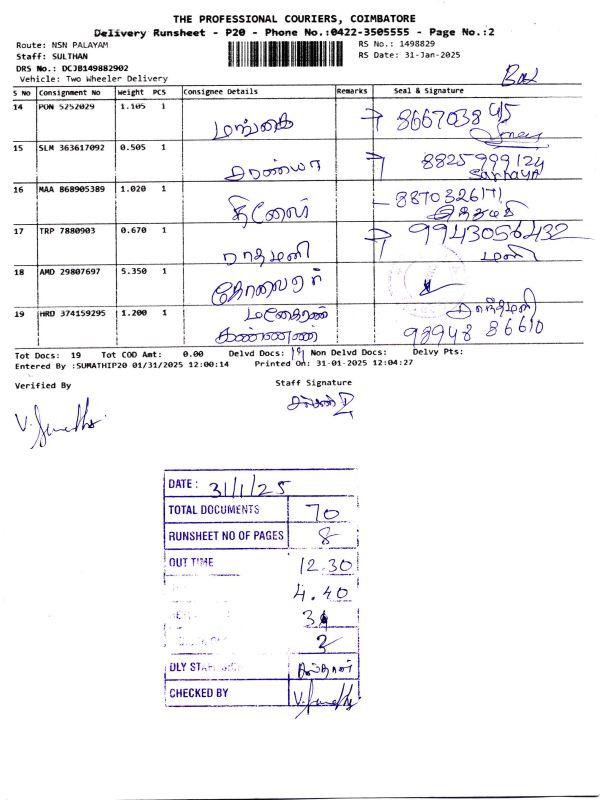 THE PROFESSIONAL COURIERS, COIMBATORE
Delivery Runsheet - P20 - Phone No.:0422-3505555 - Page No.:2
Route: NSN PALAYAM
RS No.: 1498829
Staff: SULTHAN
RS Date: 31-Jan-2025
DRS No.: DCJB149882902
Vehicle: Two Wheeler Delivery
S No Consignment No Weight PCS Consignee Details Remarks Seal & Signature
14 PON 5252029 1.105 1 மங்கை 8667038 45
15 SLM 363617092 0.505 1 சரண்யா 8825999124
Saranya
16 MAA 868905389 1.020 1 திலைர் 8870326171
17 TRP 7880903 0.670 1 ராதமணி 9943056432
மணி
18 AMD 29807697 5.350 1
19 HRD 374159295 1.200 1 மனோகரன்
கண்ணன் 98948 86610
Tot Docs: 19 Tot COD Amt: 0.00 Delvd Docs: 19 Non Delvd Docs: Delvy Pts:
Entered By :SUMATHIP20 01/31/2025 12:00:14 Printed On: 31-01-2025 12:04:27
Verified By
Staff Signature
DATE: 31/1/25
TOTAL DOCUMENTS 70
RUNSHEET NO OF PAGES 8
OUT TIME 12.30
4.40
DLY STAFF SIGN
CHECKED BY